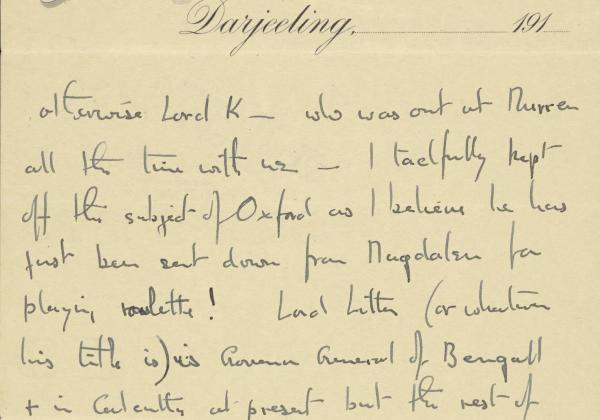 Darjeeling, 191
otherwise Lord K — who was out at Murren
all the time with us — I tactfully kept
off the subject of Oxford as I believe he has
just been sent down from Magdalen for
playing roulette! Lord Litton (or whatever
his title is) is Governor General of Bengall
+ in Calcutta at present but the rest of